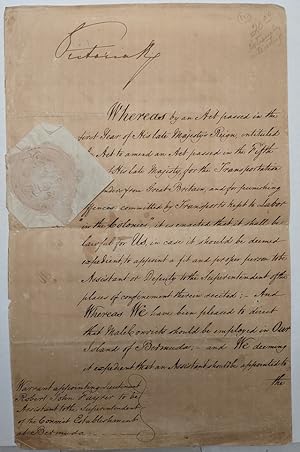 Victoria R
Whereas by an Act passed in the
first Year of His late Majesty's Reign, intituled
Act to amend an Act passed in the Fifth
His late Majesty, for the Transportation
from Great Britain, and for punishing
offences committed by Transports kept to Labor
in the Colonies", it is enacted that it shall be
lawful for Us, in case it should be deemed
expedient, to appoint a fit and proper person to be
Assistant or Deputy to the Superintendent of the
places of confinement therein recited:— And
Whereas We have been pleased to direct
that Male Convicts should be employed in Our
Island of Bermuda,— and We deeming
it expedient that an Assistant should be appointed to
the
Warrant appointing Lieutenant
Robert John to be
Assistant to the Superintendent
of the Convict Establishment
at Bermuda.